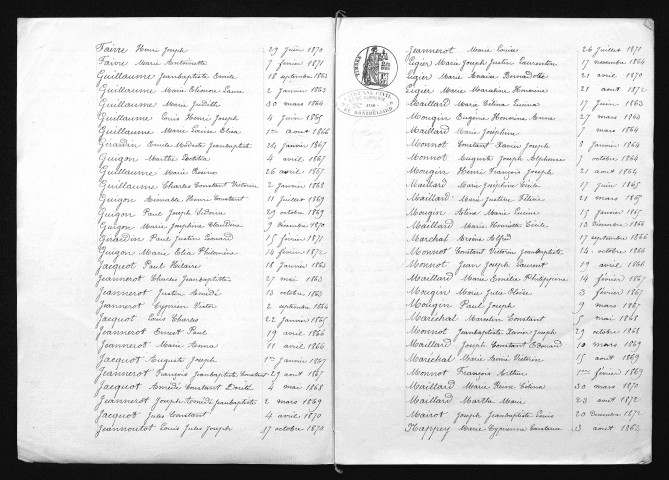 Faivre Henri Joseph 29 Juin 1870
Faivre Marie Antoinette 7 fevrier 1871
Guillaume Jeanbaptiste Emile 18 septembre 1862
Guillaume Marie Eléonore Laure 2 Janvier 1863
Guillaume Marie Judith 30 mars 1864
Guillaume Louis Henri Joseph 4 Juin 1865
Guillaume Marie Louise Elisa 1er aout 1866
Girardin Emile Modeste Jeanbaptiste 24 Janvier 1867
Guigon Marthe Laetitia 4 avril 1867
Guillaume Marie 26 avril 1867
Guillaume Charles Constant Victorin 2 Janvier 1868
Guigon Henri Constant 11 Juillet 1869
Guigon Paul Joseph Sidoine 29 octobre 1869
Guigon Marie Josephine Claudine 9 decembre 1870
Girardin Paul Justin Leonard 15 février 1871
Guigon Marie Elia Philomine 14 février 1872
Jacquot Paul Hilaire 18 Janvier 1863
Jeannerot Charles Jeanbaptiste 27 mai 1863
Jeannerot Justin Amédé 13 octobre 1863
Jeannerot Cyprien Victor 2 septembre 1864
Jacquot Louis Charles 22 Janvier 1865
Jeannerot Ernest Paul 19 avril 1866
Jeannerot Marie Anna 11 avril 1866
Jacquot Auguste Joseph 1er Janvier 1867
Jeannerot François Jeanbaptiste Constant 29 aout 1867
Jacquot Amédé Constant 4 mai 1868
Jeannerot Joseph Amédé Jeanbaptiste 2 mars 1869
Jacquot Jules Constant 4 avril 1870
Jeannoutot Louis Jules Joseph 17 octobre 1870
TIMBRE
TRIBUNAL CIVIL
DE MONTBÉLIARD
Jeannerot Marie Louise 26 Juillet 1871
Ligier Marie Joseph Justin Laurentin 17 novembre 1864
Ligier Marie Bernadotte 21 avril 1870
Ligier Marie Honorine 21 aout 1872
Maillard Marie Celina Lucina 17 Juin 1863
Mougin Eugenie Honorine Emma 27 mars 1864
Maillard Marie Joséphine 7 mars 1864
Monnot Constant Xavier Joseph 8 Janvier 1864
Monnot Auguste Joseph Alphonse 7 octobre 1864
Mougin Henri François Joseph 21 aout 1864
Maillard Marie Joséphine Cécile 17 Juin 1865
Maillard Marie Justine 21 mars 1865
Mougin Marie Lucine 15 Janvier 1865
Maillard Marie Henriette Cécile 13 Décembre 1866
Marchal Alfred 17 septembre 1866
Monnot Constant Victorin Jeanbaptiste 14 octobre 1866
Monnot Jean Joseph Laurent 19 avril 1866
Maillard Marie Emelie Philippine 14 février 1867
Mougin Marie Julie Eloïse 3 février 1867
Mougin Paul Joseph 9 mars 1867
Maréchal Marcelin Constant 5 mai 1868
Monnot Jeanbaptiste Xavier Joseph 29 octobre 1868
Maillard Joseph Constant Edouard 10 mars 1869
Maréchal Marie Victorine 15 aout 1869
Monnot François Arthur 1er février 1869
Maillard Marie Reine 30 mars 1870
Maillard Marthe Marie 23 aout 1872
Mairot Joseph Jeanbaptiste Louis 20 Decembre 1872
Nappey Marie Cyprienne 3 aout 1862